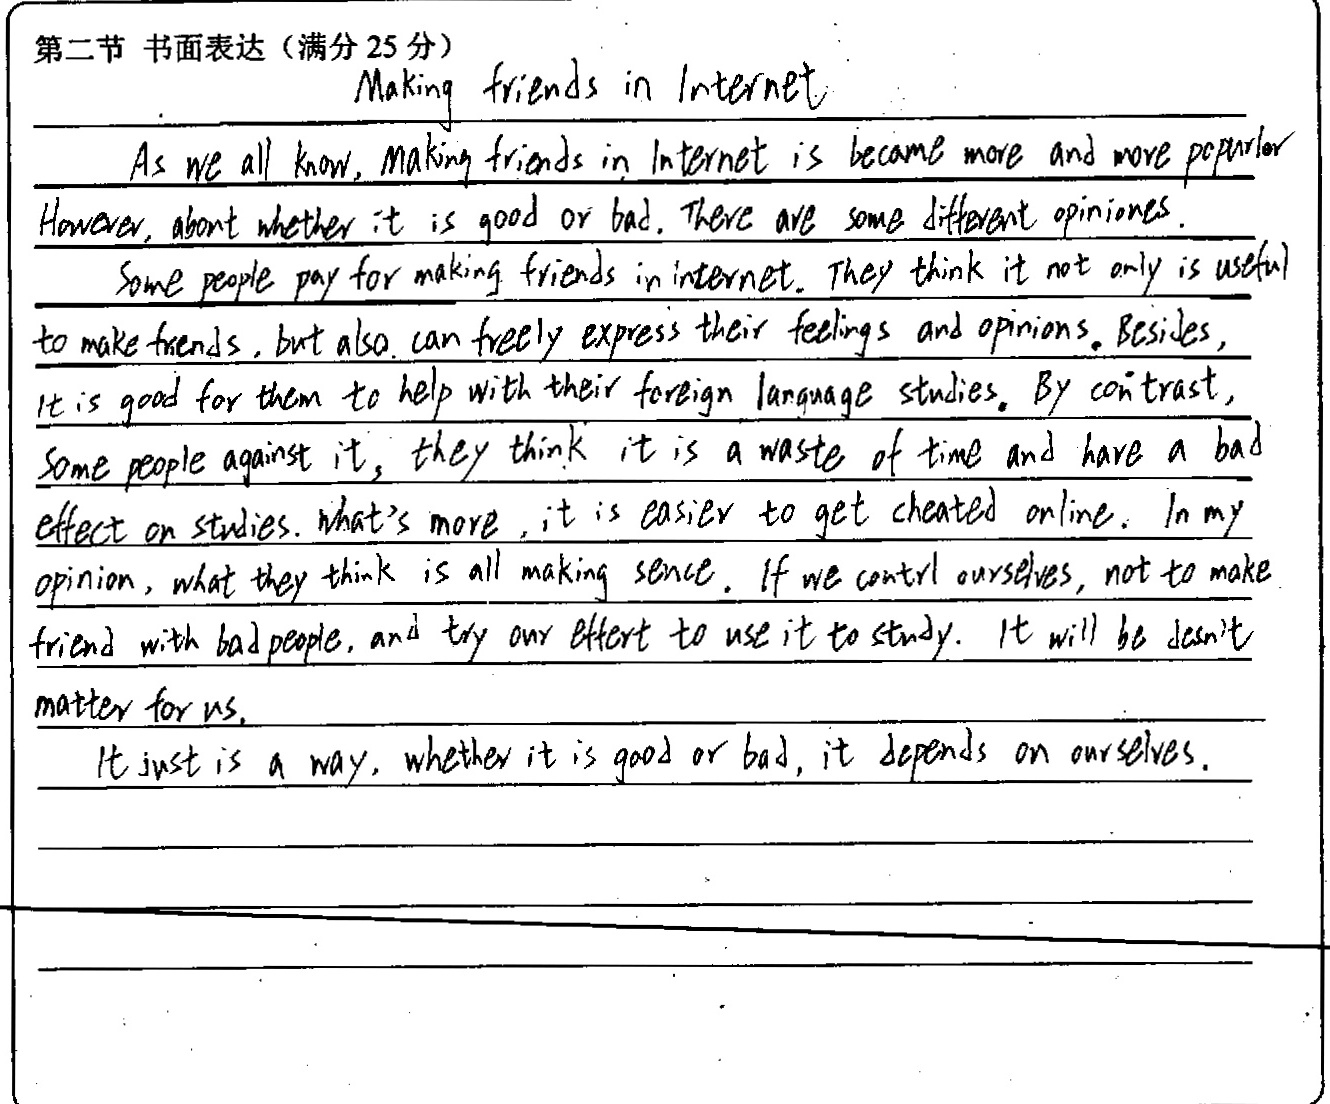 第二节 书面表达（满分 25 分）
Making friends in Internet
As we all know, Making friends in Internet is became more and more popurlar
However, about whether it is good or bad. There are some different opiniones.
Some people pay for making friends in internet. They think it not only is useful
to make friends, but also can freely express their feelings and opinions. Besides,
It is good for them to help with their foreign language studies. By contrast,
Some people against it, they think it is a waste of time and have a bad
effect on studies. What's more, it is easier to get cheated online. In my
opinion, what they think is all making sence. If we contrl ourselves, not to make
friend with bad people, and try our effert to use it to study. It will be desn't
matter for us.
It just is a way, whether it is good or bad, it depends on ourselves.